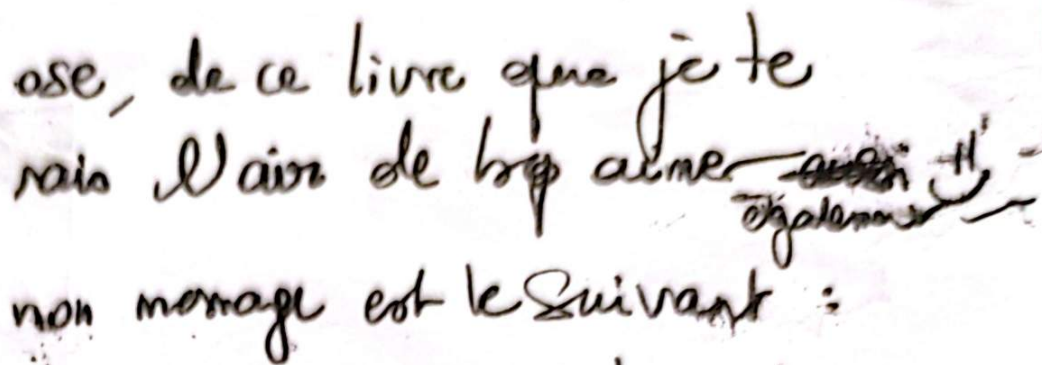 ose, de ce livre que je te
rais l'air de bcp aimer
également
mon message est le suivant :